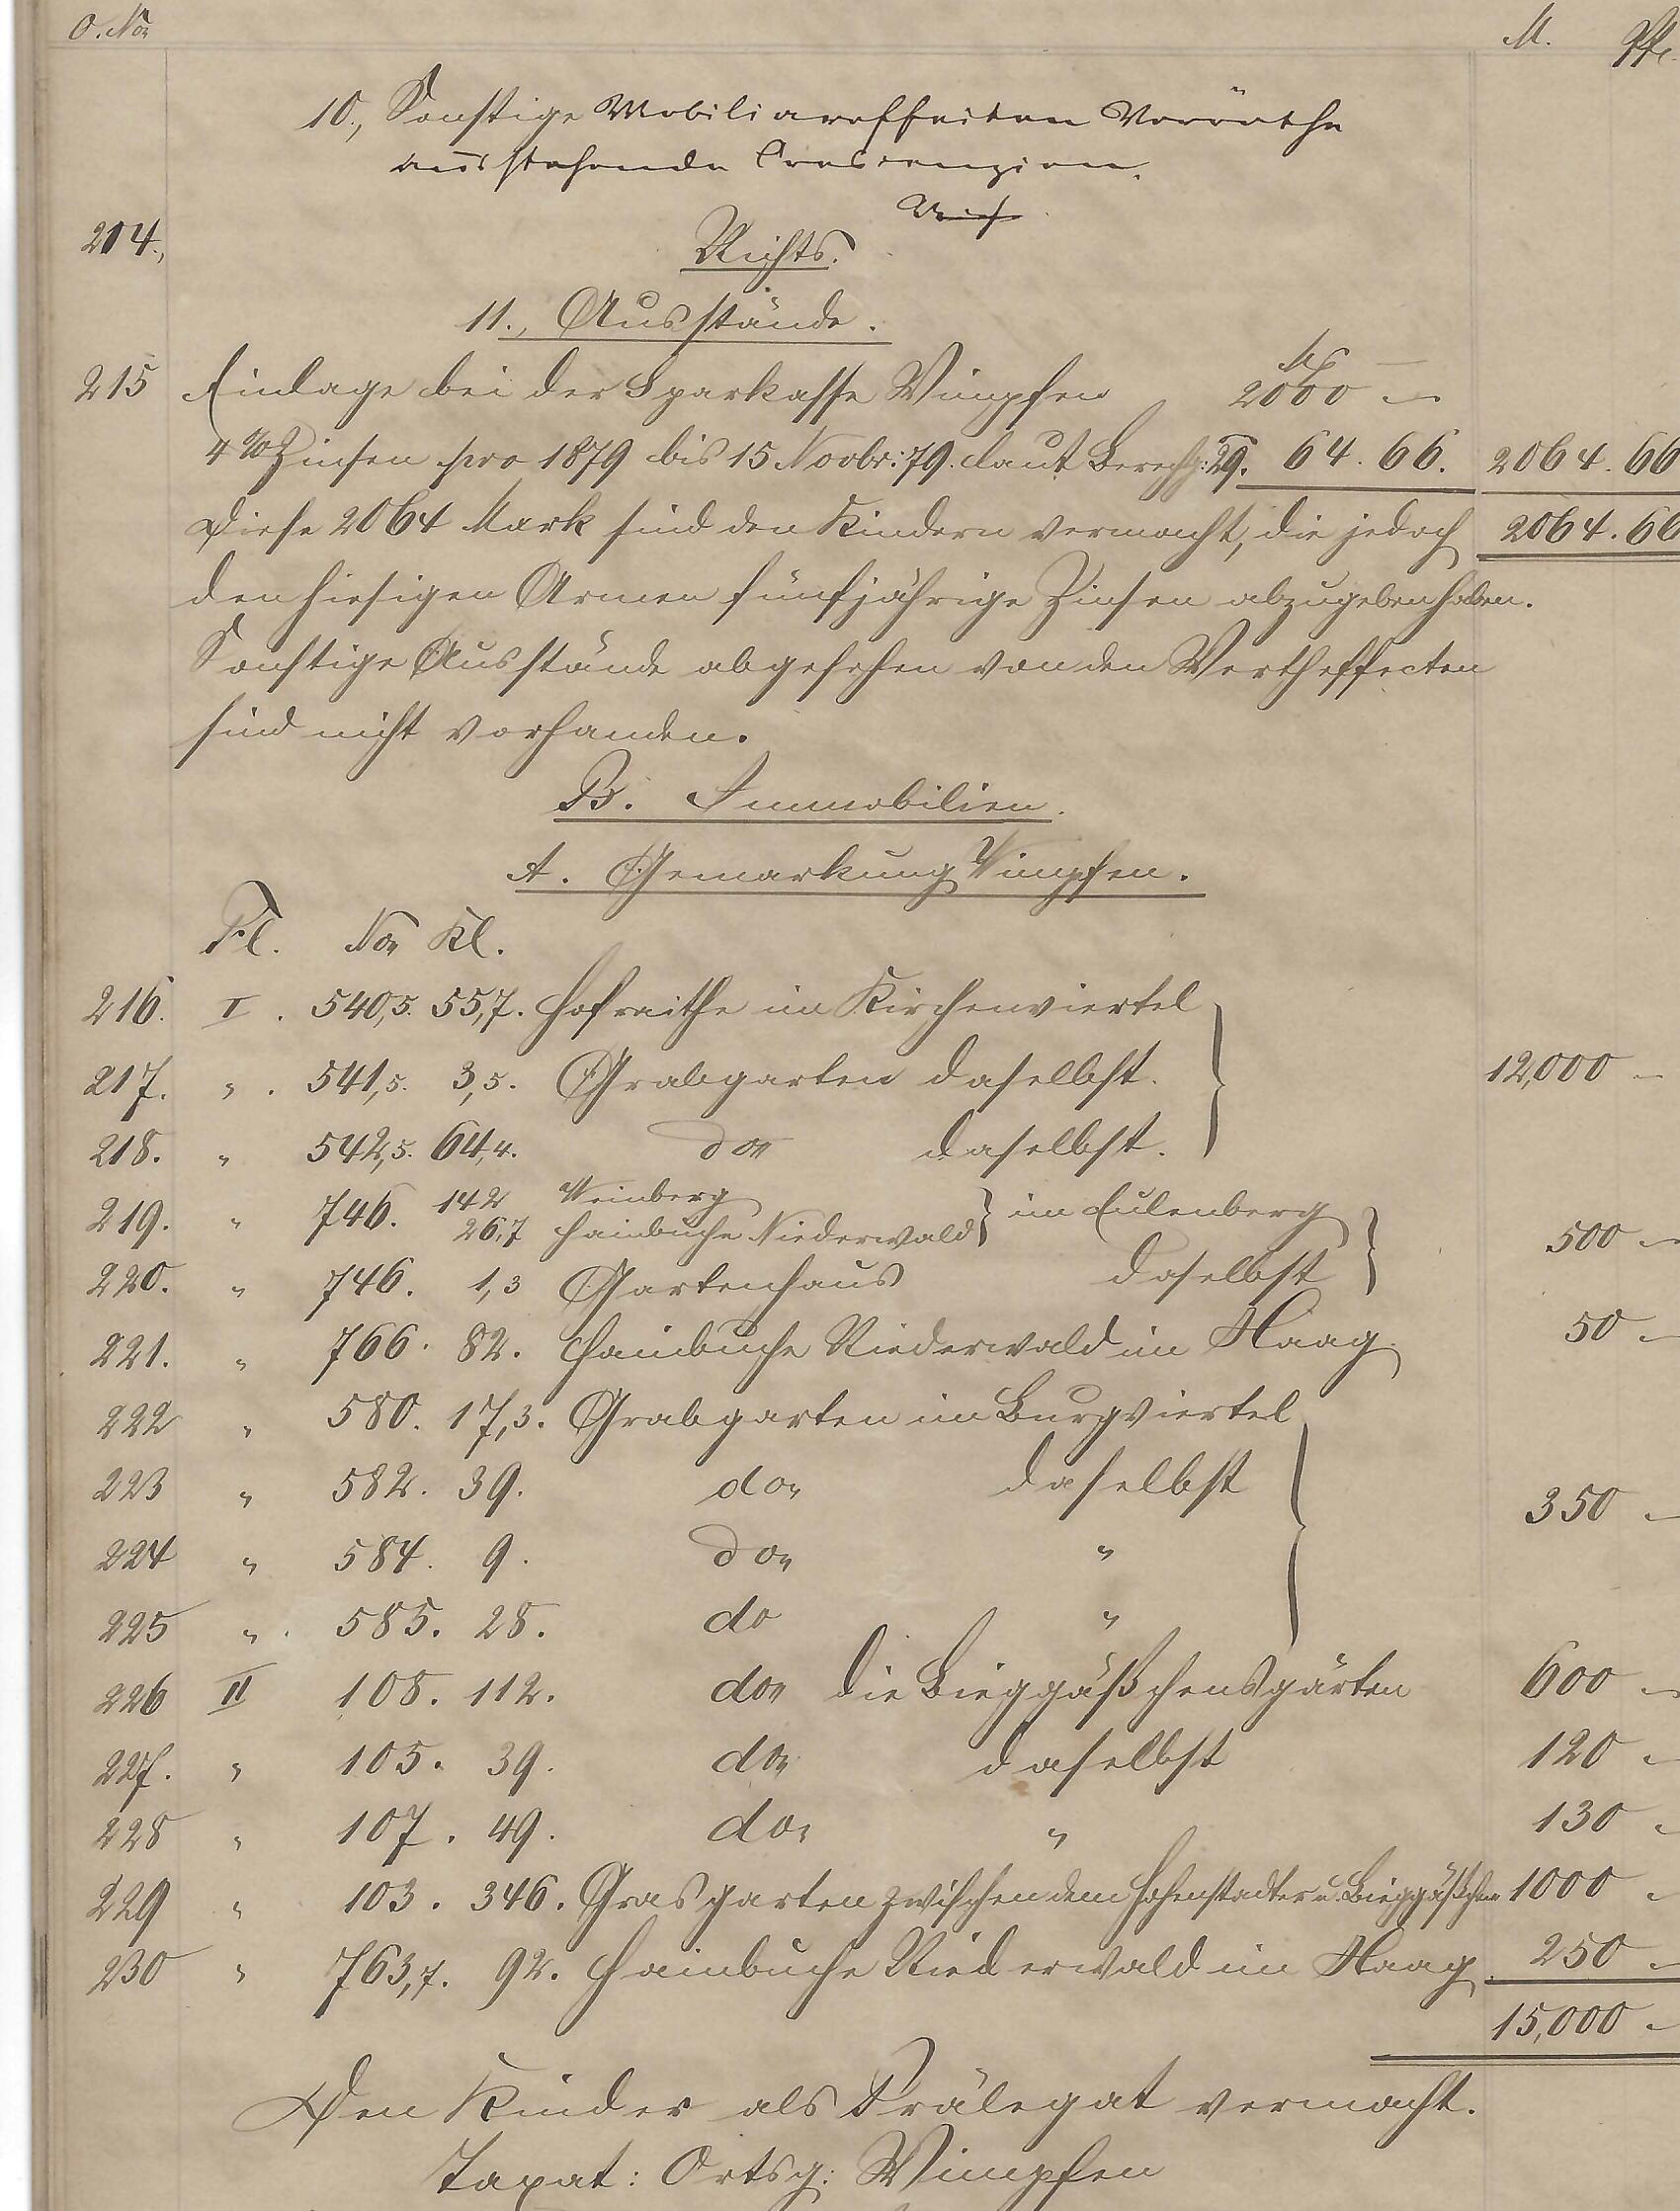 O. No. M. Pf.
10., Sonstige Mobiliareffecten Vorräthe
ausstehende Crescenzien.
214., Nichts.
11., Ausstände.
215 Einlage bei der Sparkasse Wimpfen M 2000 —
4% Zinsen pro 1879 bis 15 Novbr: 79. laut Berechg: 29. 64. 66. 2064. 66
Diese 2064 Mark sind den Kindern vermacht, die jedoch 2064. 66
den hiesigen Armen fünfjährige Zinsen abzugeben haben.
Sonstige Ausstände abgesehen von den Wertheffecten
sind nicht vorhanden.
B. Immobilien.
A. Gemarkung Wimpfen.
Fl. No. Kl.
216. I. 540,5. 55,7. Hofraithe im Kirchenviertel
217. ". 541,5. 3,5. Grabgarten daselbst. 12,000 —
218. " 542,5. 64,4. do. daselbst.
219. " 746. 142 Weinberg
26,7 Hainbuche Niederwald } im Eulenberg 500 —
220. " 746. 1,3 Gartenhaus daselbst
221. " 766. 82. Hainbuche Niederwald im Haag. 50 —
222 " 580. 17,3. Grabgarten im Burgviertel
223 " 582. 39. do. daselbst 350 —
224 " 584. 9. do. "
225 ". 585. 28. do "
226 II 108. 112. do. die Bieggäßchensgärten 600 —
227. " 105. 39. do. daselbst 120 —
228 " 107. 49. do. " 130 —
229 " 103. 346. Grasgarten zwischen dem Hohenstadter u. Bieggäßchen 1000 —
230 " 763,7. 92. Hainbuche Niederwald im Haag. 250 —
15,000 —
Den Kinder als Prälegat vermacht.
Taxat: Ortsg: Wimpfen